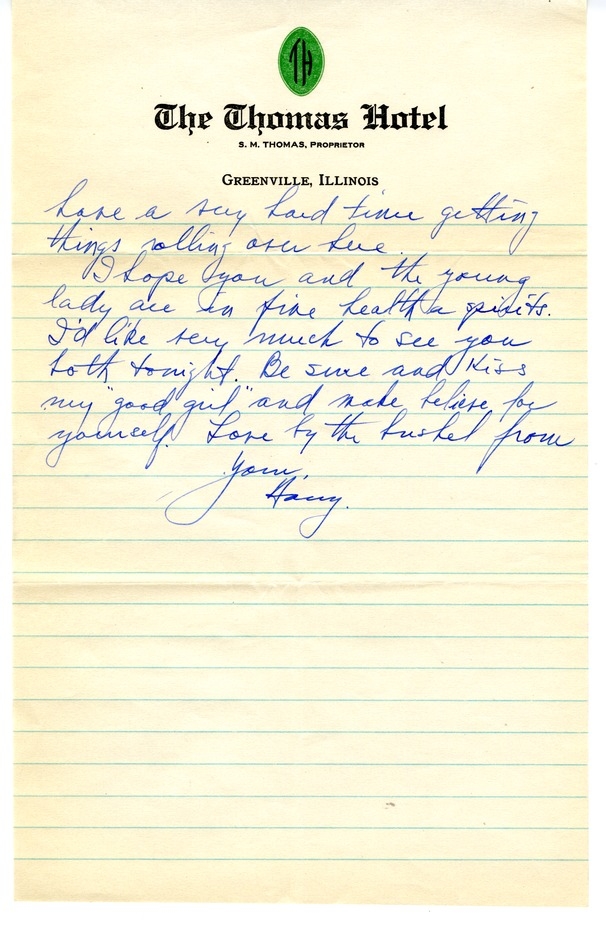 TH
The Thomas Hotel
S. M. THOMAS, PROPRIETOR
GREENVILLE, ILLINOIS
have a very hard time getting
things rolling over here.
I hope you and the young
lady are in fine health & spirits.
I'd like very much to see you
both tonight. Be sure and kiss
my "good girl" and make believe for
yourself. Love by the bushel from
Your,
Harry.